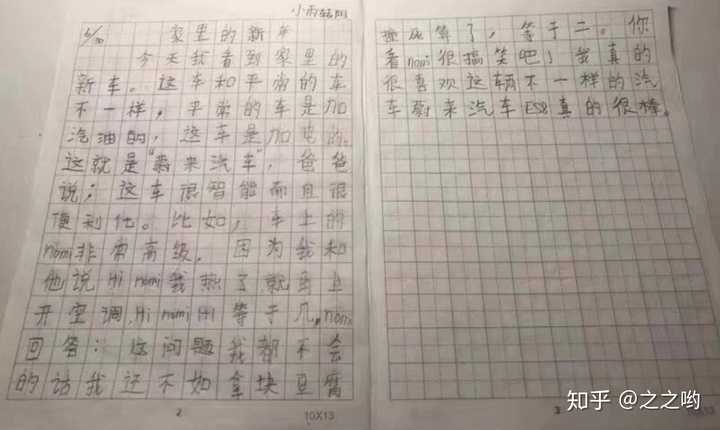 小雨转阴
6/10 家里的新车
今天我看到家里的
新车。这车和平常的车
不一样，平常的车是加
汽油的，这车是加电的。
这就是"蔚来汽车"，爸爸
说：这车很智能而且很
便利他。比如，车上的
nomi非常高级。因为我和
他说Hi nomi我热了就马上
开空调，Hi nomi 1+1等于几，nomi
回答：这问题我都不会
的话我还不如拿块豆腐
撞死算了，等于二。你
看nomi很搞笑吧！我真的
很喜欢这辆不一样的汽
车蔚来汽车ES8真的很棒。
2
10X13
3
知乎 @之之哟